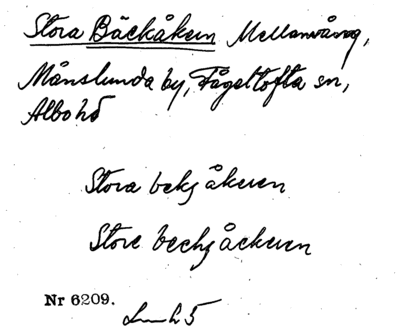 Stora Bäckåkern Mellanvång,
Månslunda by, Fågeltofta sn,
Albo hd
Stora bekzåkeren
Store bechzåckeren
Nr 6209.